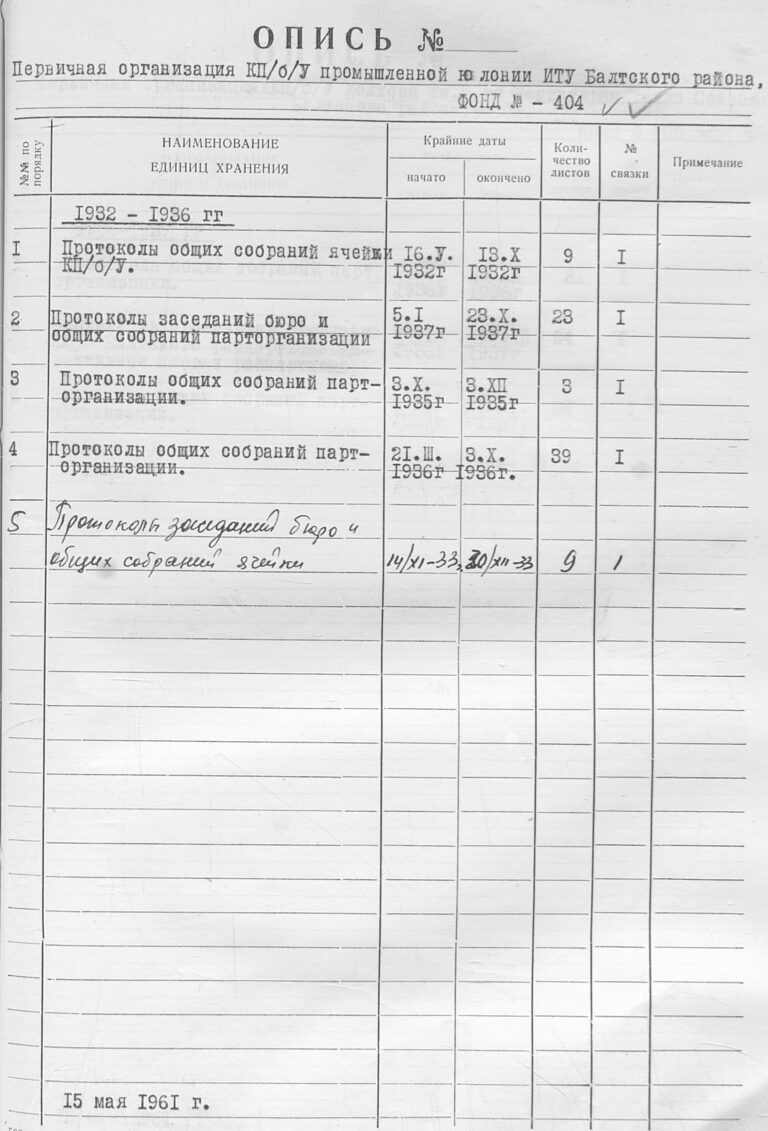 ОПИСЬ №
Первичная организация КП/б/У промышленной колонии ИТУ Балтского района,
ФОНД № - 404
№№ по порядку | НАИМЕНОВАНИЕ ЕДИНИЦ ХРАНЕНИЯ | Крайние даты | Коли-чество листов | № связки | Примечание
начато | окончено
1932 - 1936 гг
1 Протоколы общих собраний ячейки 16.У. 13.Х 9 I
КП/б/У. 1932г 1932г
2 Протоколы заседаний бюро и 5.I 23.Х. 23 I
общих собраний парторганизации 1937г 1937г
3 Протоколы общих собраний парт- 3.Х. 3.ХП 3 I
организации. 1935г 1935г
4 Протоколы общих собраний парт- 21.Ш. 3.Х. 39 I
организации. 1936г 1936г.
5 Протоколы заседаний бюро и
общих собраний ячейки 14/XI-33. 30/XII-33 9 1
15 мая 1961 г.